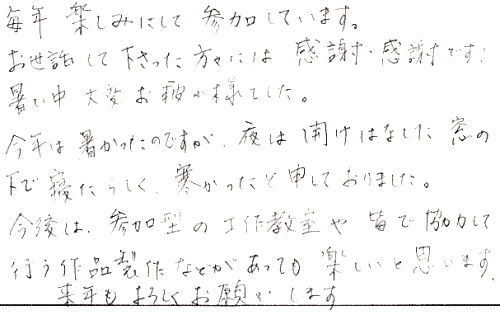 毎年 楽しみにして 参加しています。
お世話して下さった方々には 感謝・感謝です!
暑い中 大変お疲れ様でした。
今年は暑かったのですが、夜は開けはなした窓の
下で寝たらしく、寒かったと申しておりました。
今後は、参加型の工作教室や皆で協力して
行う作品製作などがあっても 楽しいと思います。
来年もよろしくお願いします